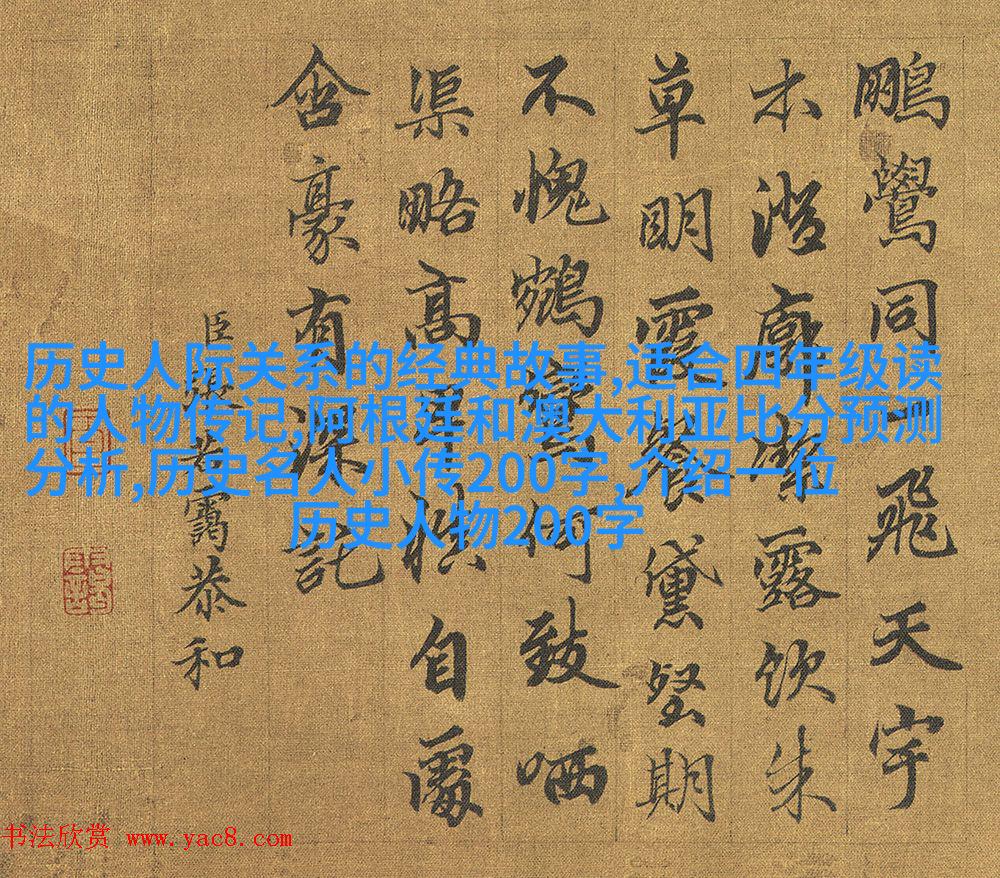 鵬鷽同一飛天宇
木澄廓露飲朱
草明霞餐黛壑期
不愧鶴何致哂
渠略高自
含豪有深託
臣張若靄恭和
历史人际关系的经典故事,适合四年级读
的人物传记,阿根廷和澳大利亚比分预测
分析,历史名人小传200字,介绍一位
历史人物200字
书法欣赏 www.yac8.com